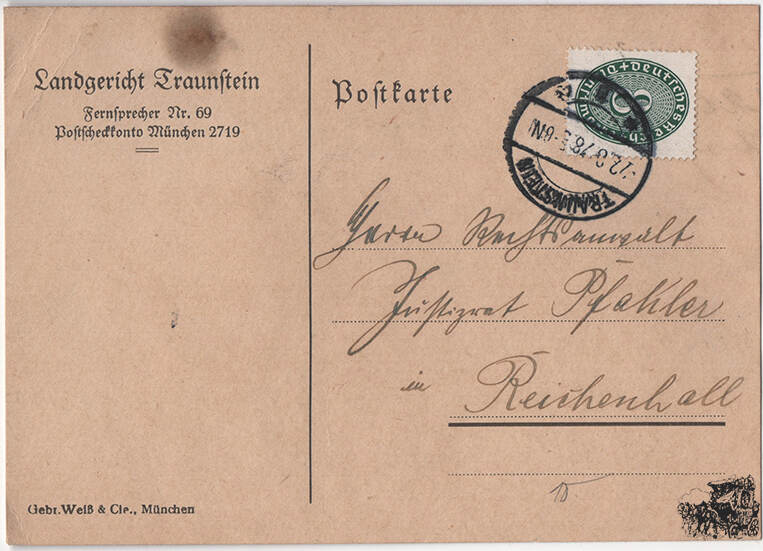 Landgericht Traunstein
Fernsprecher Nr. 69
Postscheckkonto München 2719
Postkarte
Deutsches Reich
TRAUNSTEIN
Herrn Rechtsanwalt
Justizrat Pfahler
in
Reichenhall
Gebr. Weiß & Cie., München